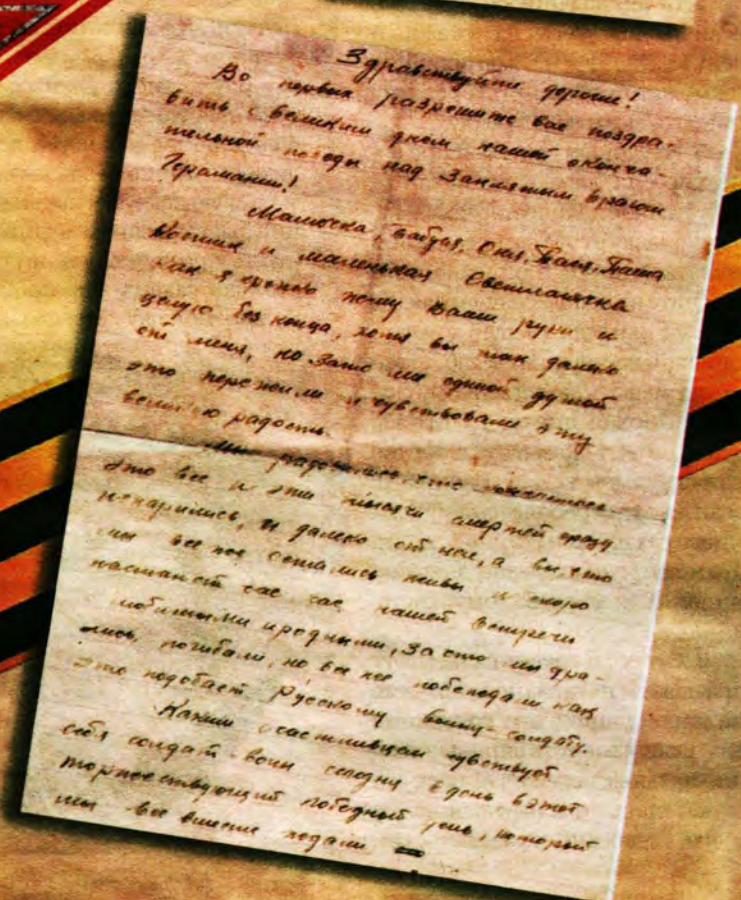 Здравствуйте дорогие!
Во первых разрешите вас поздра-
вить с великим днем нашей оконча-
тельной победы над Заклятым врагом
Германии!
Мамочка, бабуся, Оля, Валя, Паша
Костик и маленькая Светланочка
как я крепко жму Ваши руки и
целую без конца, хотя вы так далеко
от меня, но зато мы единой душой
это пережили и чувствовали эту
великую радость.
Мы радовались, что кончилось
это все и эти тысячи смертей сразу
и далеко от нас, а вы, что
мы все же остались живы и скоро
настанет час час нашей встречи
с любимыми и родными, за что мы дра-
лись, погибали, но все же побеждали как
это подобает Русскому воину-солдату.
Каким счастливцем чувствует
себя солдат-воин сегодня в день в этот
торжествующий победный день, который
мы все вместе ждали